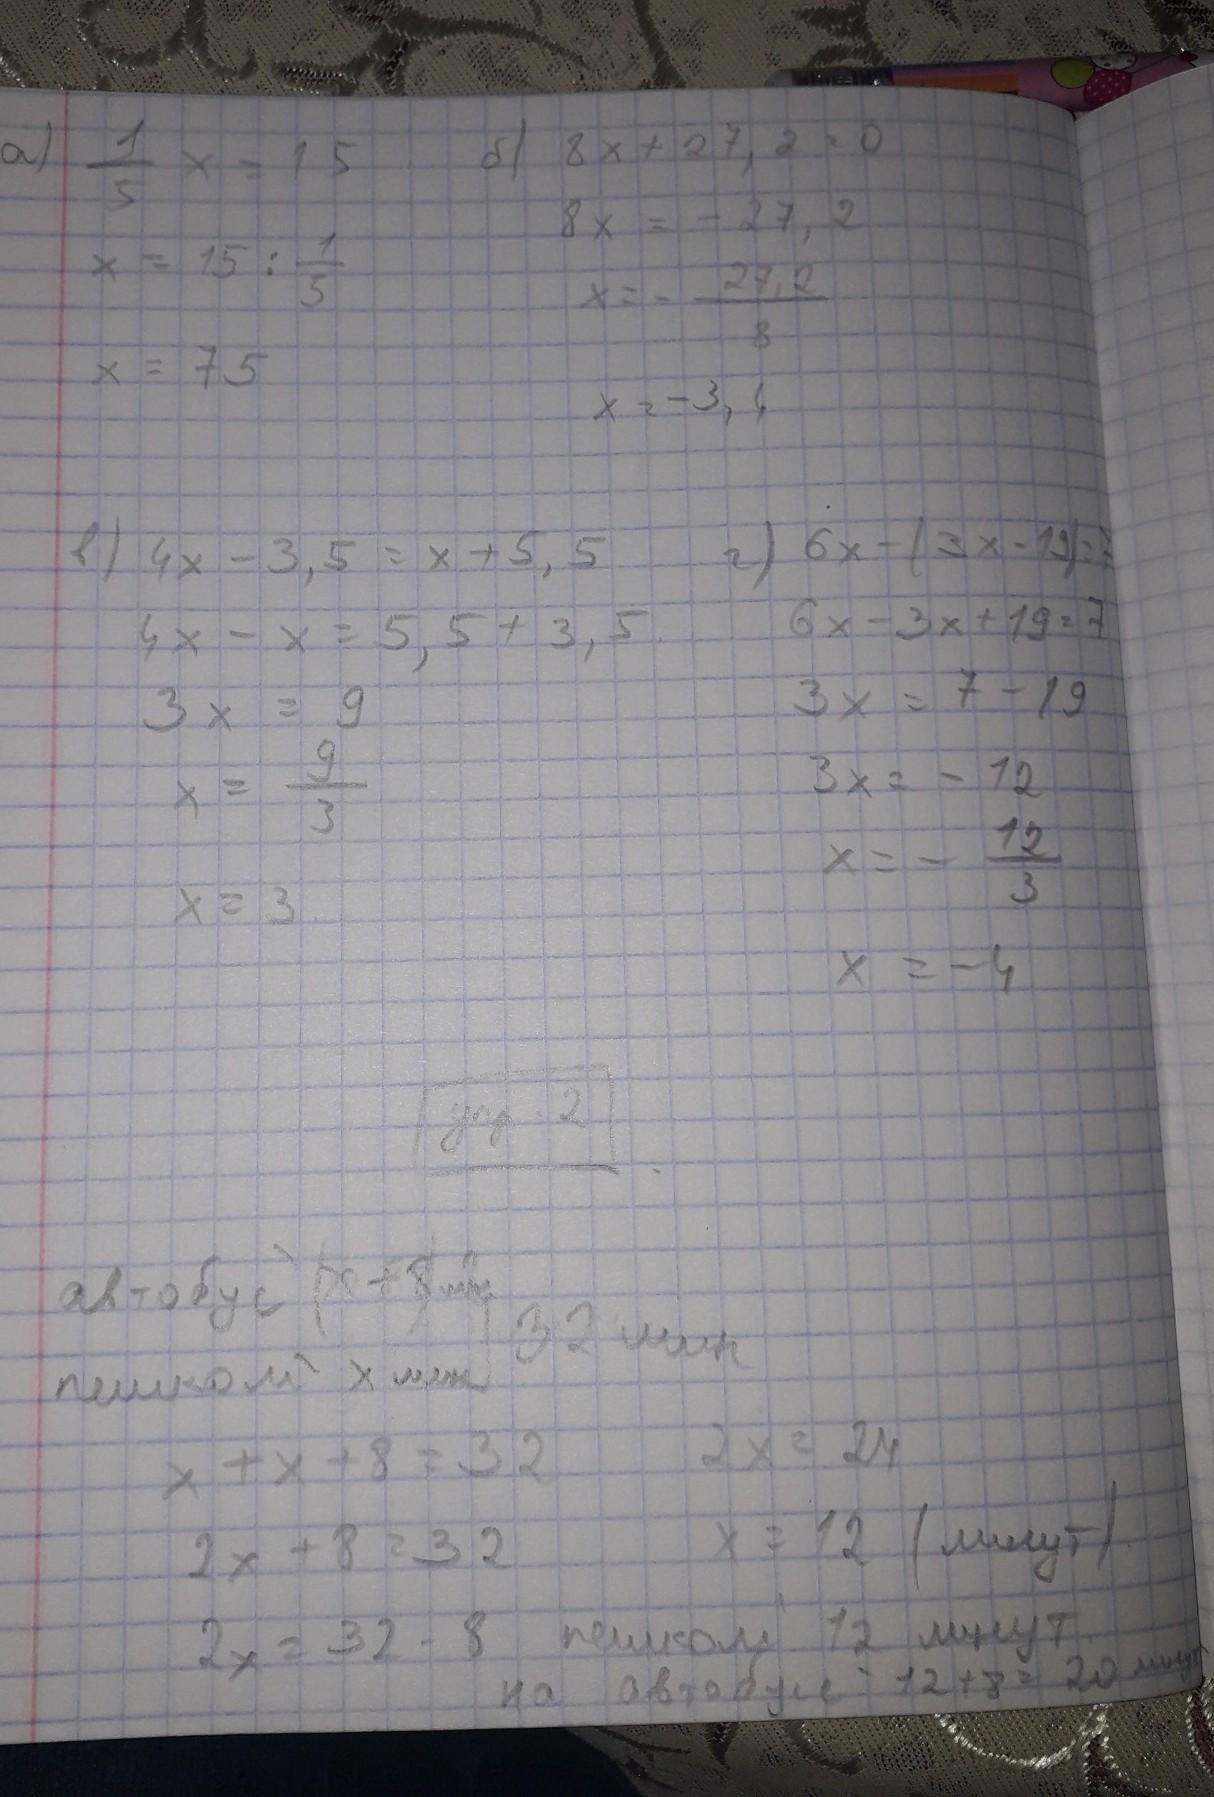 а) 1/5 x = 15
x = 15 : 1/5
x = 75
б) 8x + 27,2 = 0
8x = - 27,2
x = - 27,2/8
x = -3,4
в) 4x - 3,5 = x + 5,5
4x - x = 5,5 + 3,5
3x = 9
x = 9/3
x = 3
г) 6x - (3x - 19) = 7
6x - 3x + 19 = 7
3x = 7 - 19
3x = - 12
x = - 12/3
x = -4
упр. 2
автобус (x + 8) мин
32 мин
пешком x мин
x + x + 8 = 32
2x + 8 = 32
2x = 32 - 8
2x = 24
x = 12 (минут)
пешком 12 минут
на автобусе 12 + 8 = 20 минут